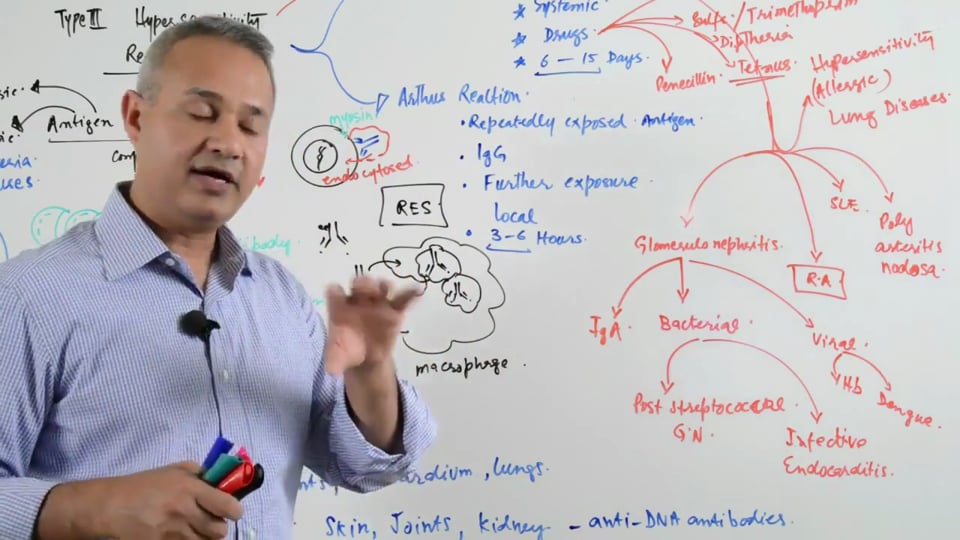 Type III Hypersensitivity
Antigen
Systemic
Drugs
6 - 15 Days.
Sulfa / Trimethoprim
Diptheria
Tetnus.
Penecillin.
Hypersensitivity
(Allergic)
Lung Diseases.
Arthus Reaction.
Repeatedly exposed Antigen.
IgG
Further exposure
local
3-6 Hours.
myosin
endocytosed.
RES
macrophage.
Glomerulonephritis.
R.A
SLE.
Poly
arteritis
nodosa.
IgA
Bacterial.
Viral.
Hb
Dengue.
Post streptococcal.
GN.
Infective
Endocarditis.
, lungs.
Skin, Joints, kidney - anti-DNA antibodies.